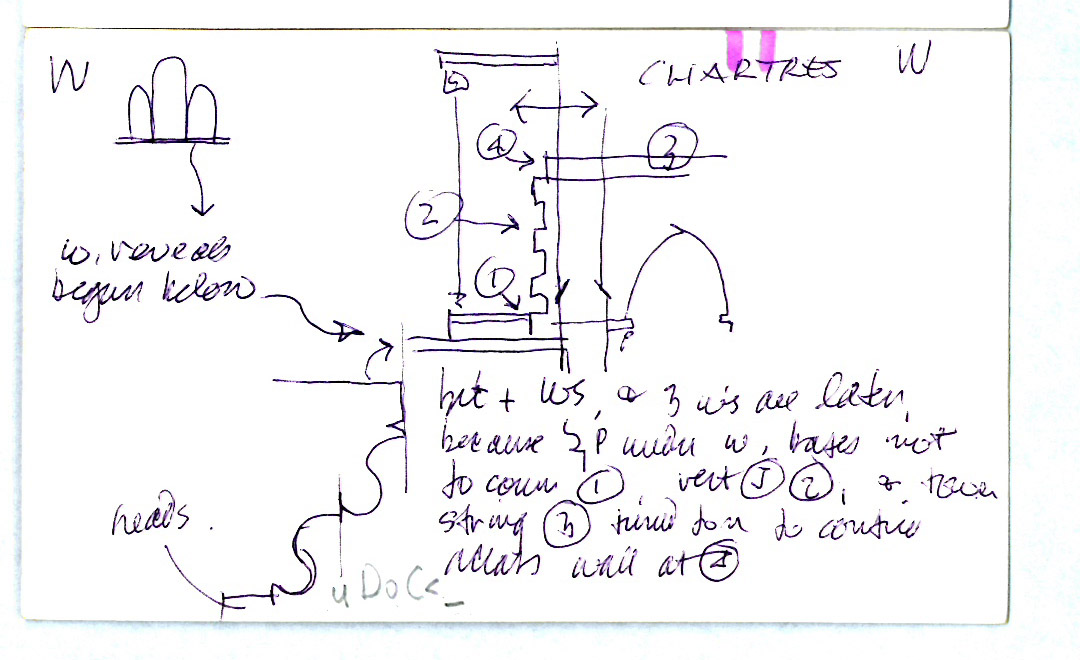 W
CHARTRES
W
5
4
3
2
1
w. reveals
began below
P
but + WS, & 3 w's are later,
because P under w, bases not
to course 1, vert J 2, & tower
string 3 turned to
across wall at 4
heads.